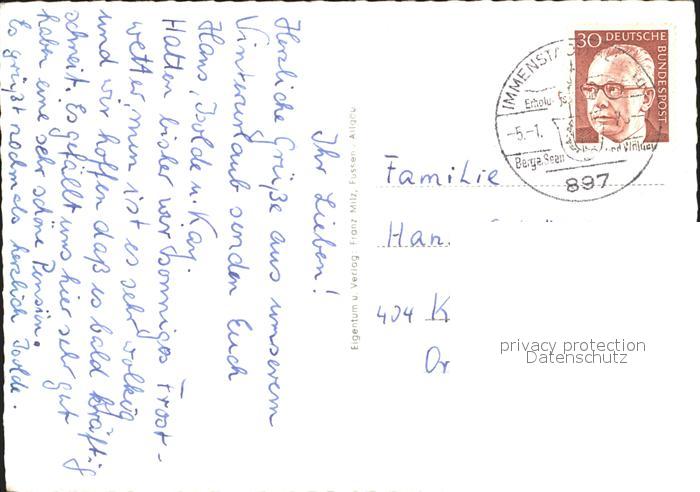 Ihr Lieben!
Herzliche Grüße aus unserem
Winterurlaub senden Euch
Hans, Isolde u. Kay.
Hatten bisher nur sonniges Frost-
wetter, nun ist es sehr wolkig
und wir hoffen daß es bald kräftig
schneit. Es gefällt uns hier sehr gut
haben eine sehr schöne Pension.
Es grüßt nochmals herzlich Isolde.
Eigentum u. Verlag Franz Milz, Füssen - Allgäu
30 DEUTSCHE
BUNDESPOST
IMMENSTA
Erholu
-5.-1.
Berge Seen
897
Familie
Han.
404 K
Or
privacy protection
Datenschutz